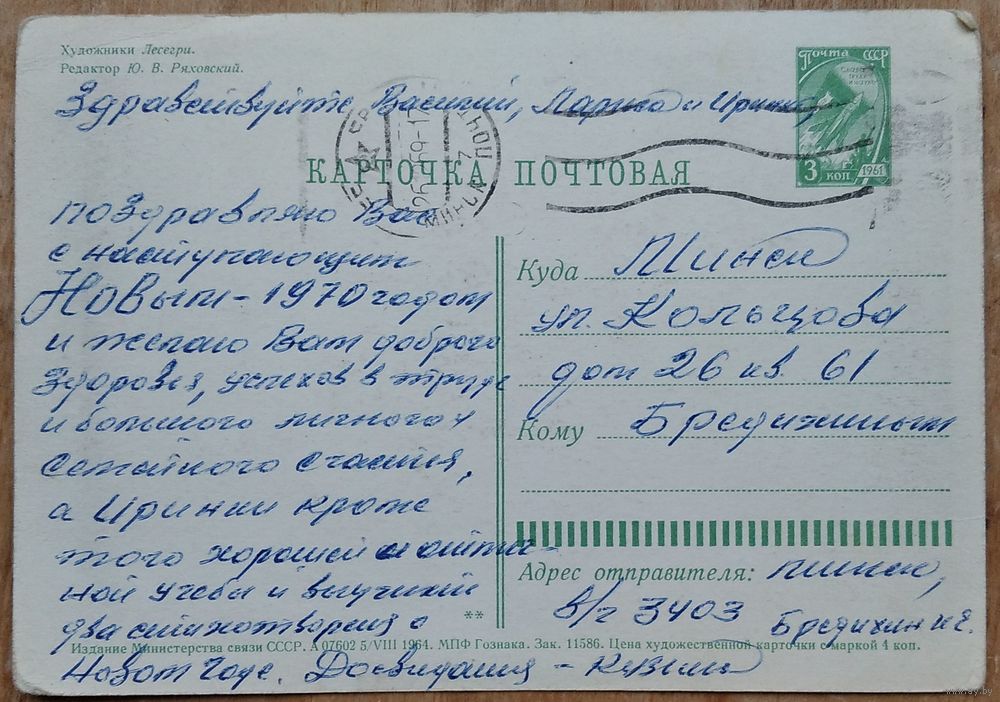 Художники Лесегри.
Редактор Ю. В. Ряховский.
Почта СССР
3 коп 1961
Здравствуйте Василий, Лариса и Ирина,
КАРТОЧКА ПОЧТОВАЯ
МИНСК
поздравляю Вас
с наступающим
Новым - 1970 годом
и желаю Вам доброго
здоровья, успехов в труде
и большого личного и
семейного счастья,
а Иринки кроме
того хорошей и отлич-
ной учебы и выучить
два стихотворения о
Новом Годе. Досвидания -
Куда Минск
ул. Кольцова
дом 26 кв. 61
Кому Бредихиным
Адрес отправителя:
в/ч 3403 Бредихин
**
Издание Министерства связи СССР. А 07602 5/VIII 1964. МПФ Гознака. Зак. 11586. Цена художественной карточки с маркой 4 коп.
www.ay.by